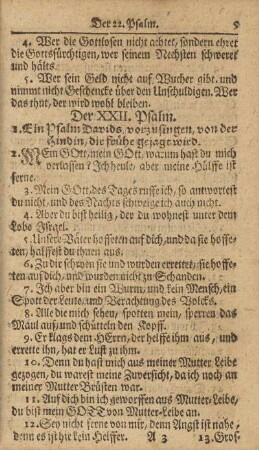 Der 22. Psalm. 5
4. Wer die Gottlosen nicht achtet, sondern ehret
die Gottsfürchtigen, wer seinem Nechsten schweret
und hälts.
5. Wer sein Geld nicht auf Wucher gibt, und
nimmt nicht Geschencke über den Unschuldigen. Wer
das thut, der wird wohl bleiben.
Der XXII. Psalm.
1. Ein Psalm Davids, vorzusingen, von der
Hindin, die frühe gejagt wird.
2. Mein GOtt, mein GOtt, warum hast du mich
verlassen? Ich heule, aber meine Hülffe ist
ferne.
3. Mein GOtt, des Tages ruffe ich, so antwortest
du nicht, und des Nachts schweige ich auch nicht.
4. Aber du bist heilig, der du wohnest unter dem
Lobe Israel.
5. Unsere Väter hofften auf dich, und da sie hoff-
ten, halffest du ihnen aus.
6. Zu dir schryen sie und wurden errettet, sie hoff-
ten auf dich, und wurden nicht zu Schanden.
7. Ich aber bin ein Wurm, und kein Mensch, ein
Spott der Leute, und Verachtung des Volcks.
8. Alle die mich sehen, spotten mein, sperren das
Maul auf, und schütteln den Kopff.
9. Er klags dem HErrn, der helffe ihm aus, und
errette ihn, hat er Lust zu ihm.
10. Denn du hast mich aus meiner Mutter Leibe
gezogen, du warest meine Zuversicht, da ich noch an
meiner Mutter Brüsten war.
11. Auf dich bin ich geworffen aus Mutter-Leibe,
du bist mein GOTT von Mutter-Leibe an.
12. Sey nicht ferne von mir, denn Angst ist nahe,
denn es ist hie kein Helffer. A 3 13. Gros-